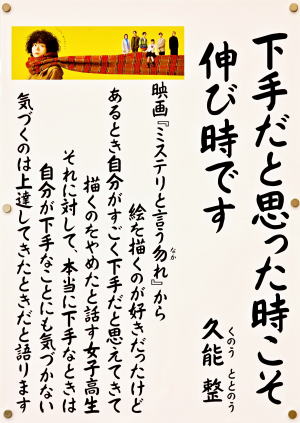 下手だと思った時こそ
伸び時です
久能 整
くのう ととのう
映画『ミステリと言う勿れ』から
なか
絵を描くのが好きだったけど
あるとき自分がすごく下手だと思えてきて
描くのをやめたと話す女子高生
それに対して、本当に下手なときは
自分が下手なことにも気づかない
気づくのは上達してきたときだと語ります